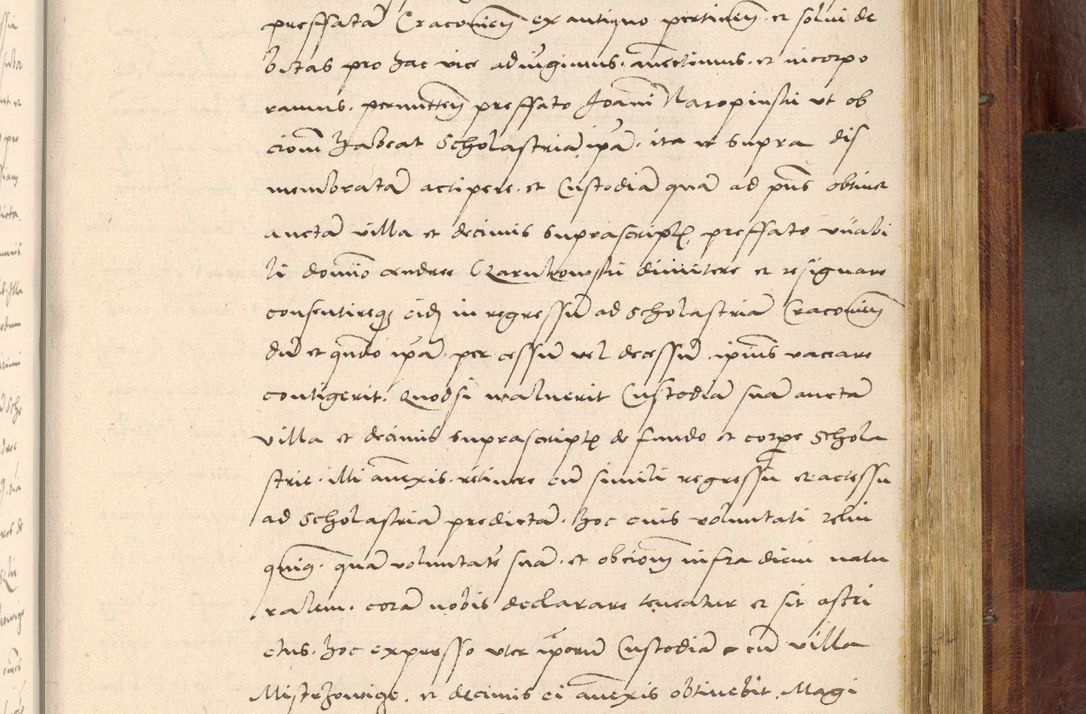 preffatā Cracovieñ ex antiquo pertineñ et solvi de
bitas pro hac vice adiūgimus, añectimus et incorpo
ramus, permitteñ preffato Joanni Naropinski ut ob
cionē habeat Scholastriā ipā ita ut supra dis
membratā accipere et Custodiā quā ad pñs obtinet
auctā villa et decimis suprascript, preffato vñabi
li domiō Andree Czarnkowski dimittere et resignare
consentireq eid in regressū ad Scholastriā Cracovieñ
dū et qūdo ipā per cessū vel decessū ipius vaccare
contigerit. Quodsi maluerit Custodiā suā auctā
villa et decimis suprascript de fundo et corpe Schola
strie illi añexis retinere cū simili regressū et accessū
ad Scholastriā predictā. hoc eius voluntati relin
quimq quā voluntatē suā et obcionē infra diem natu
ralem corā nobis declarare teneatur et sit astri
ctus. hoc expresso uter ipōrū Custodiā cū villa
Mistrzowige et decimis ei añexis obtinebit, Magi